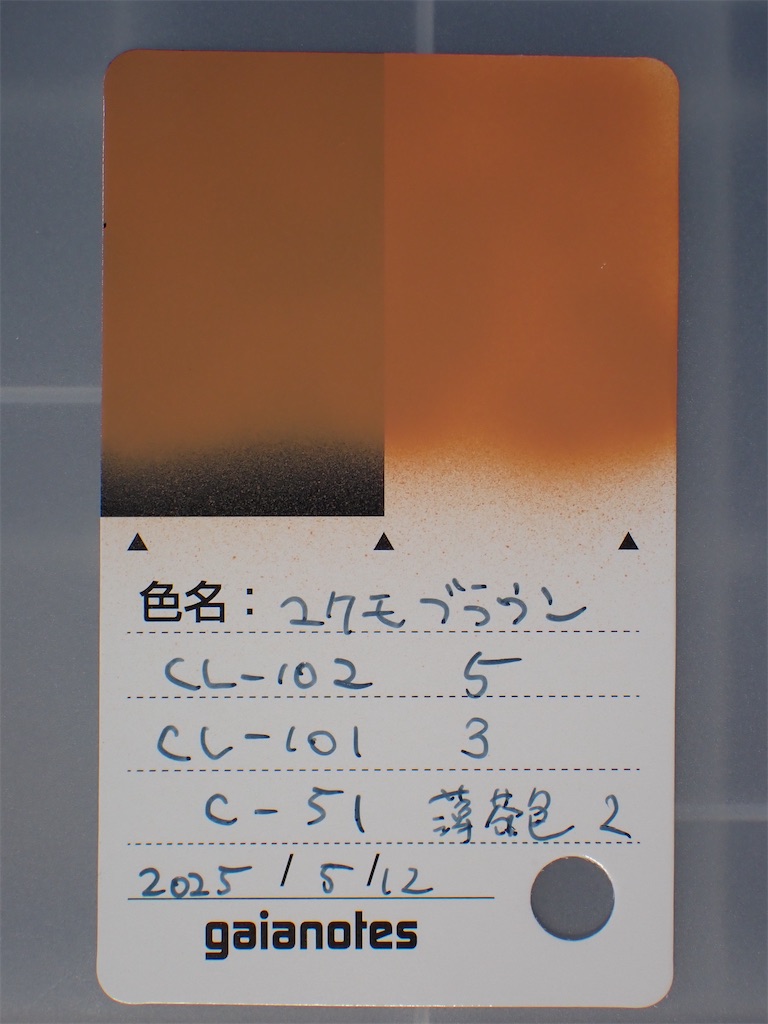 色名：コケモブラウン
CL-102 5
CL-101 3
C-51 薄茶色 2
2025/5/12
gaianotes